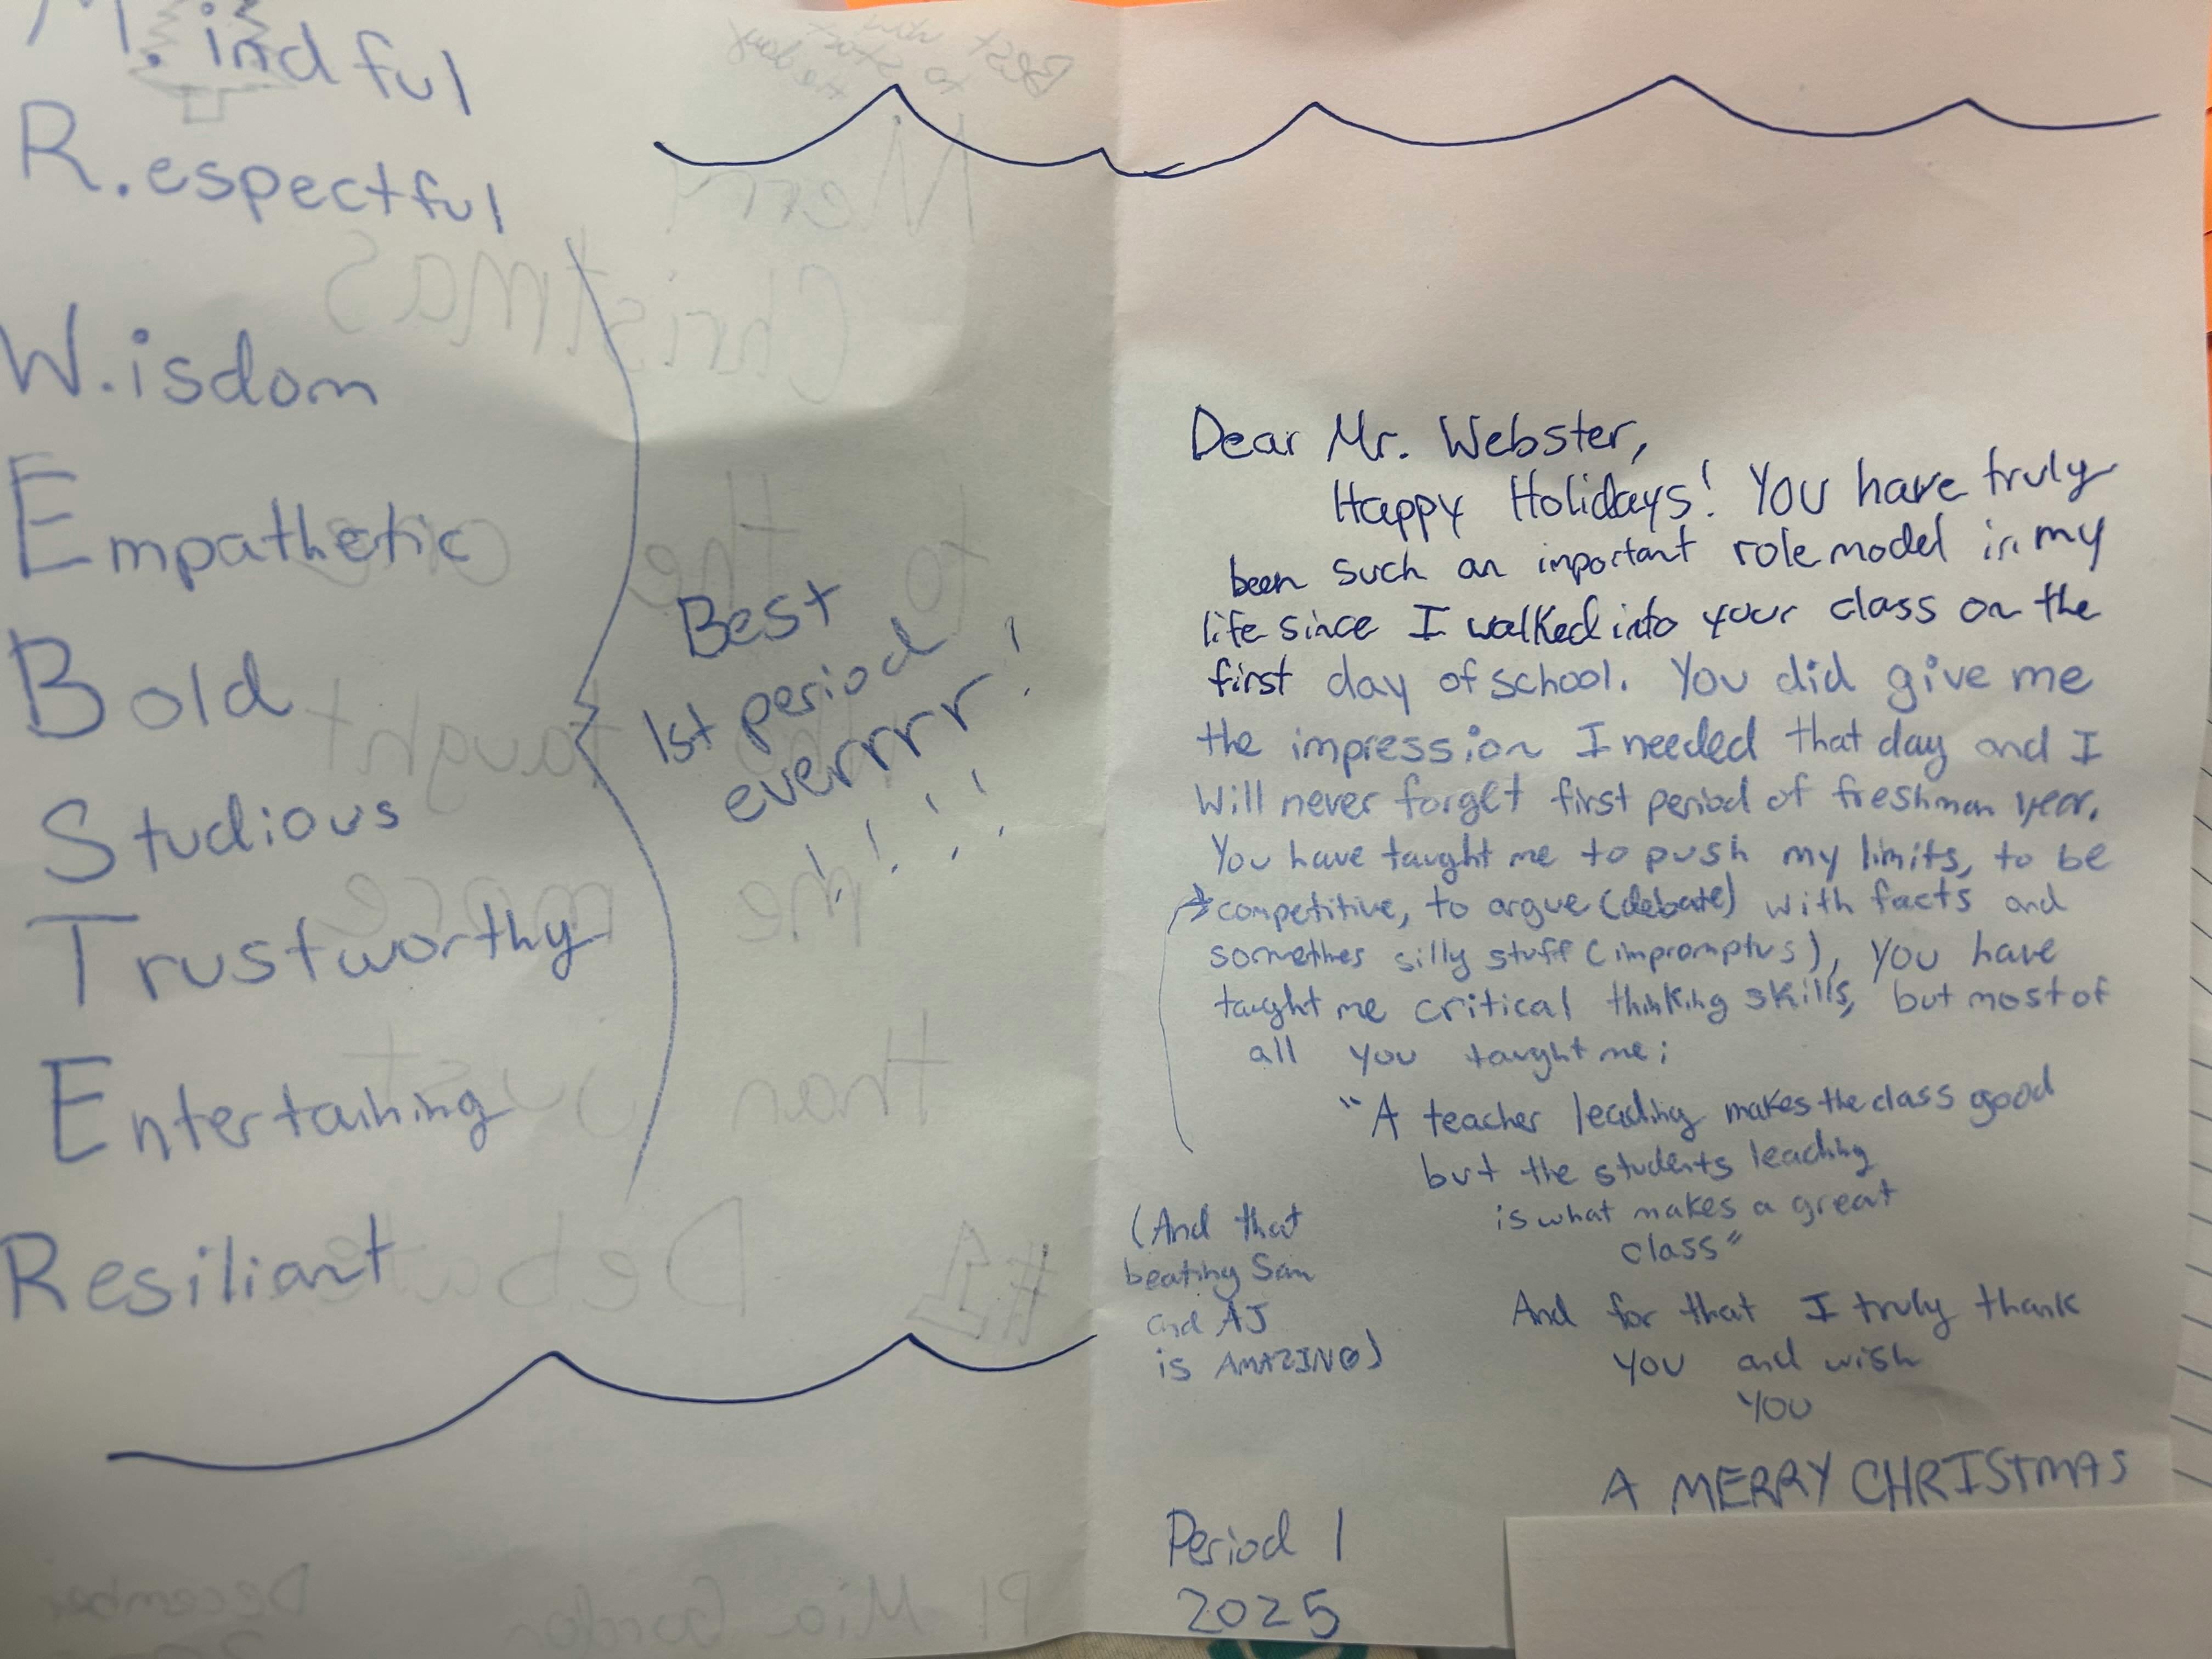 M.indful
R.espectful
W.isdom
Empathetic
Bold
Studious
Trustworthy
Entertaining
Resiliant
Best
1st period
everrrr!
! ! ! !
Dear Mr. Webster,
Happy Holidays! You have truly
been such an important role model in my
life since I walked into your class on the
first day of school. You did give me
the impression I needed that day and I
will never forget first period of freshman year.
You have taught me to push my limits, to be
competitive, to argue (debate) with facts and
somethes silly stuff (impromptus), you have
taught me critical thinking skills, but most of
all you taught me;
"A teacher leading makes the class good
but the students leading
is what makes a great
class"
(And that
beating Sam
and AJ
is AMAZING)
And for that I truly thank
you and wish
you
A MERRY CHRISTMAS
Period 1
2025
Best mom
to star
Merry
Christmas
to the
taught
me more
than just
#1 Debate
P1 Mia Gordon
December